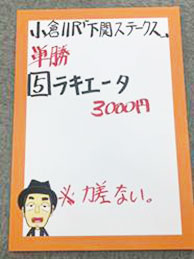 小倉11R「下関ステークス」
単勝
5 ラキエータ
3000円
※力差ない。